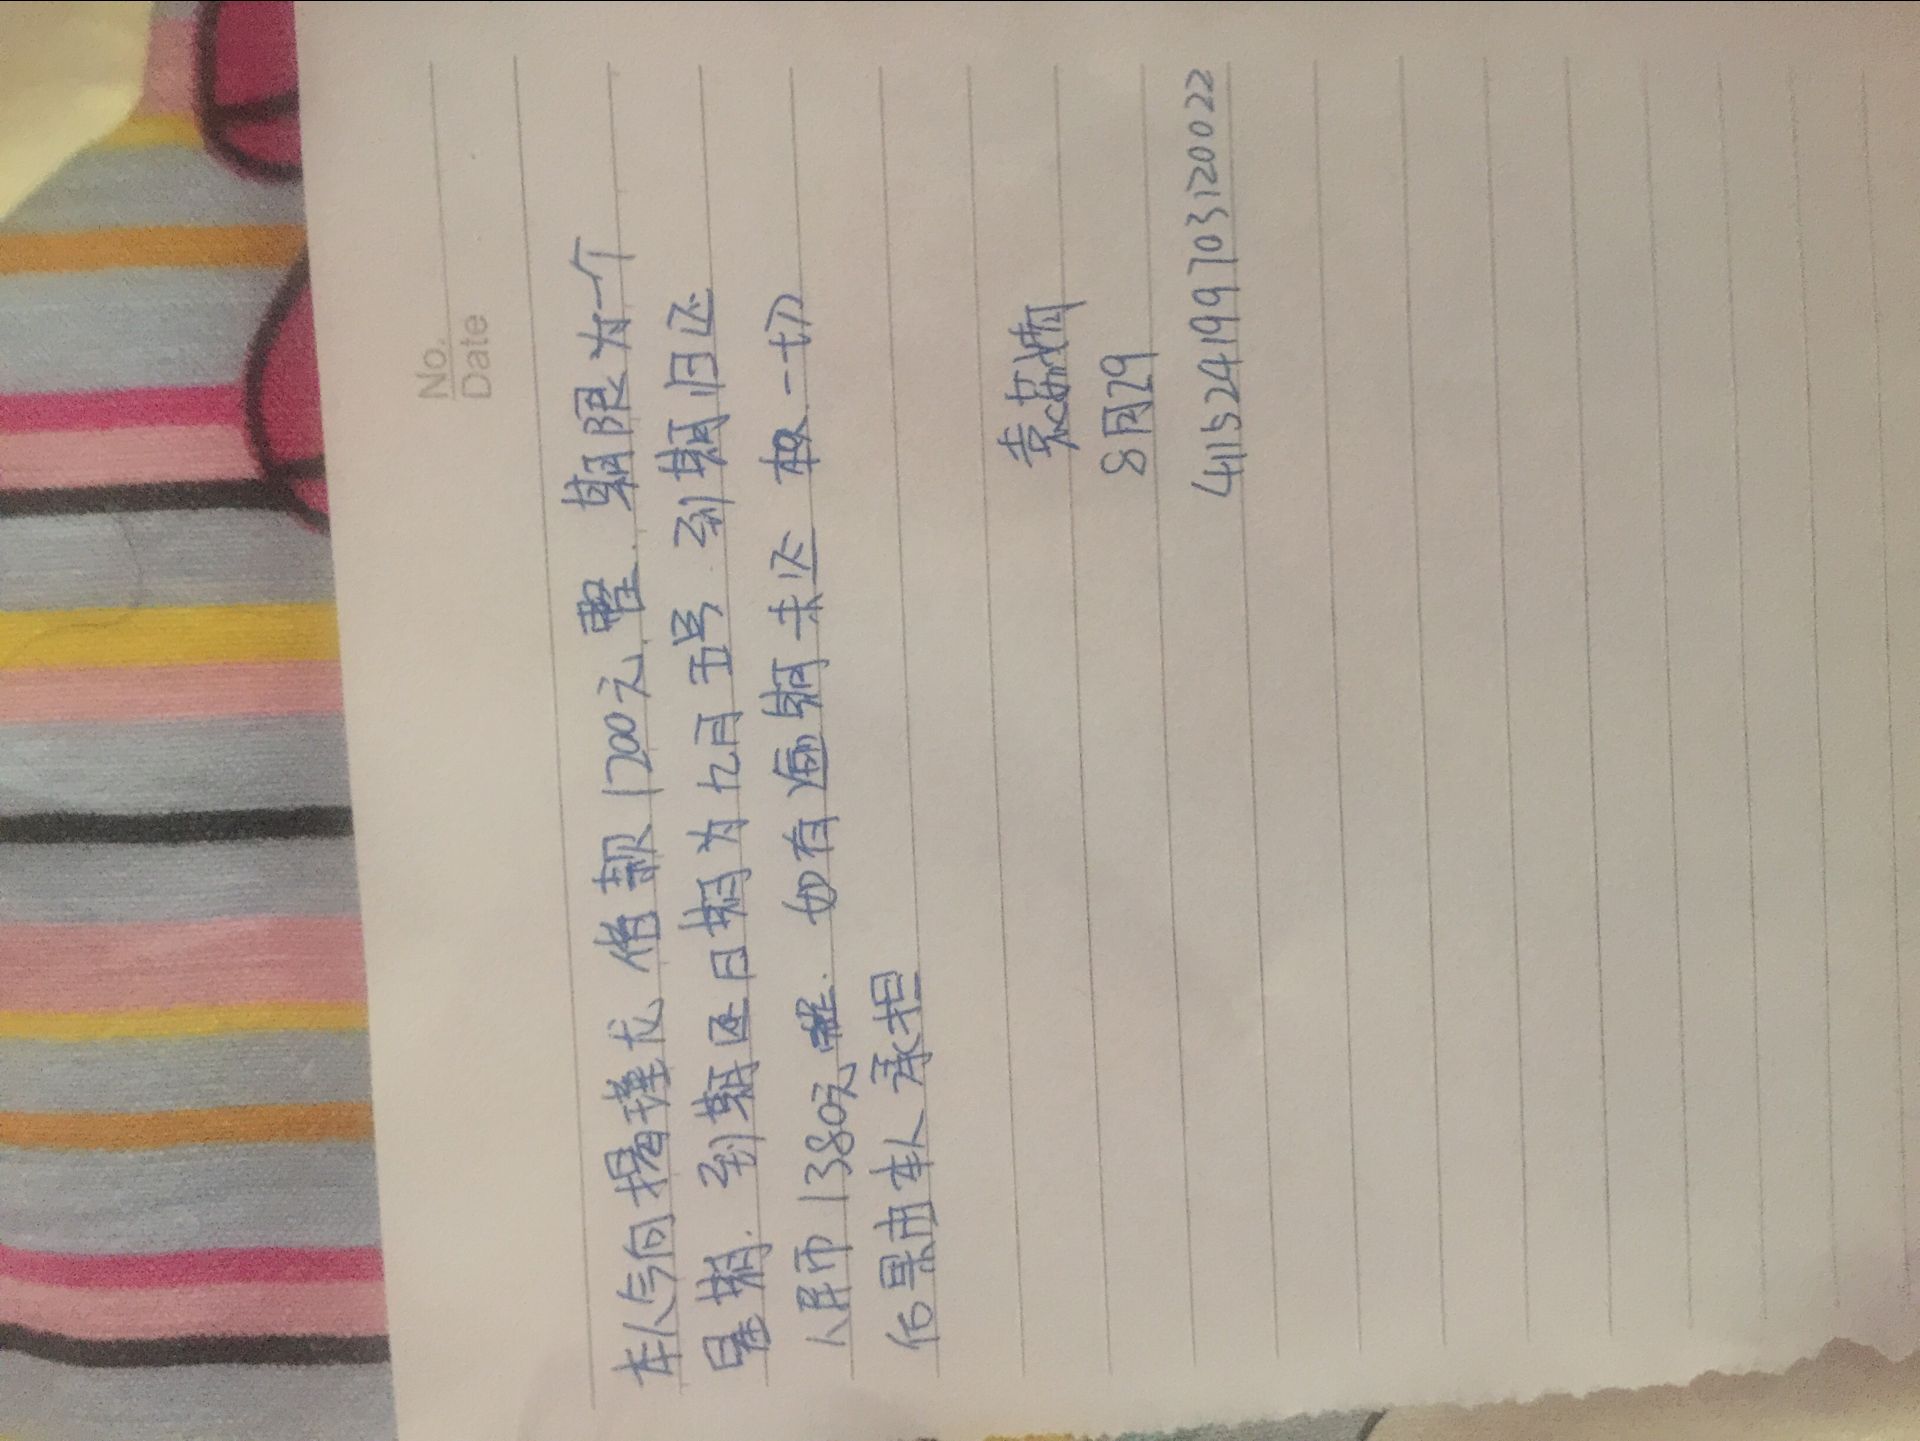 No.
Date
本人今向揚瑾龙 借款1200元整. 期限为一个
星期. 到期还日期为九月五号 到期归还
人民币1380元整. 如有逾期未还 一切
后果由本人承担
袁苏婧
8月29
411524199703120022